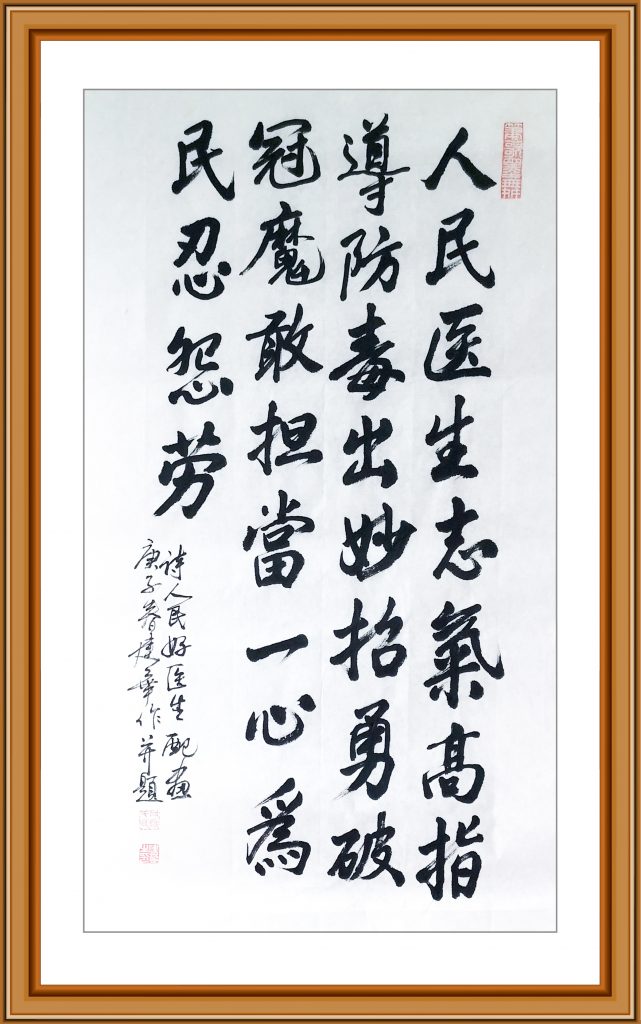 人民医生志氣高指
導防毒出妙招勇破
冠魔敢担當一心為
民忍怨劳
诗人民好医生配画
庚子春華作并題